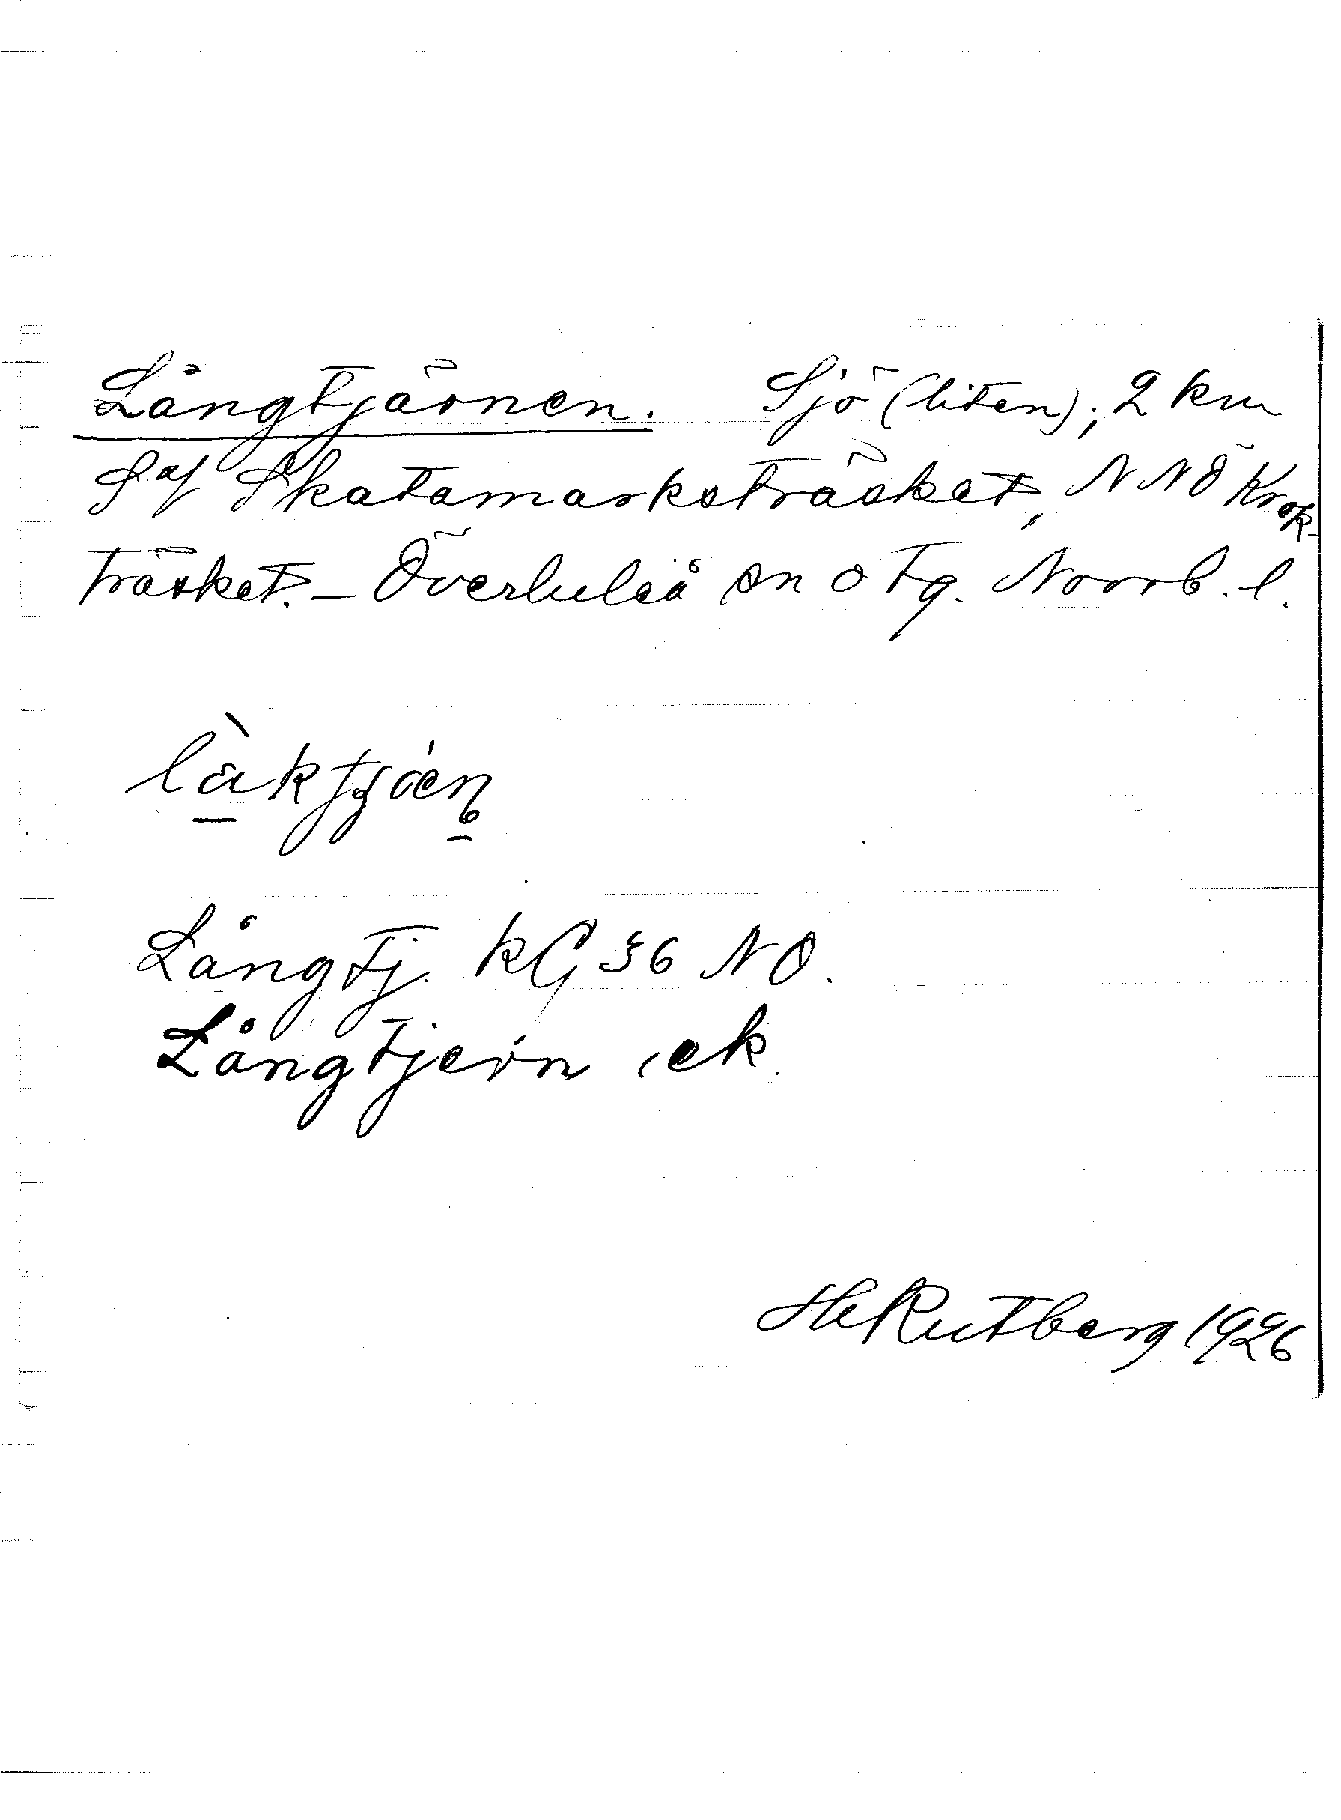 Långtjärnen. Sjö (liten); 2 km
S af Skatamarksträsket, NNÖ Krok-
träsket. – Överluleå sn o tg. Norrb. l.
Långtj. kG 36 NO.
Långtjern, ek.
HeRutberg 1926